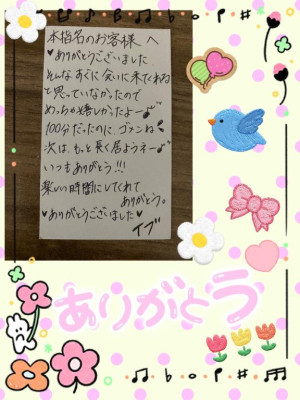 本指名のお客様 へ
♥ありがとうございました
そんなすぐに会いに来てくれる
と思っていなかったので
めっちゃ嬉しかったよー♪
100分だったのに、ゴメンね
次は もっと長く居ようネー♪
いつもありがとう!!!
楽しい時間にしてくれて
ありがとう。
♥ありがとうございました♥
イブ
ありがとう
b o p #
b o p #